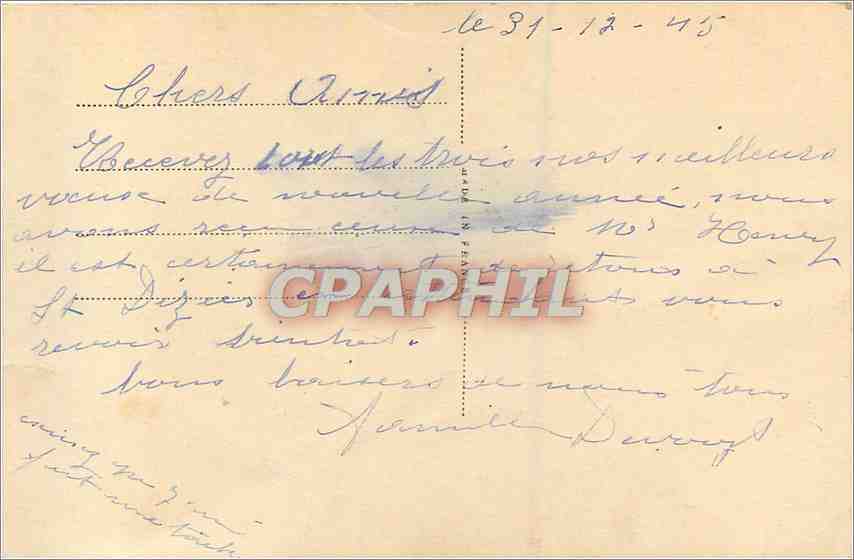 le 31-12-45
Chers Amis
Recevez tout les trois nos meilleurs
voeuse de nouvelle année, nous
avons reçu ceuse de Mr Henry
il est certainement de retour à
St Dizier en attendant vous
revoir bientot.
bons baisers de nous tous
Famille
MADE IN FRANCE
CPAPHIL